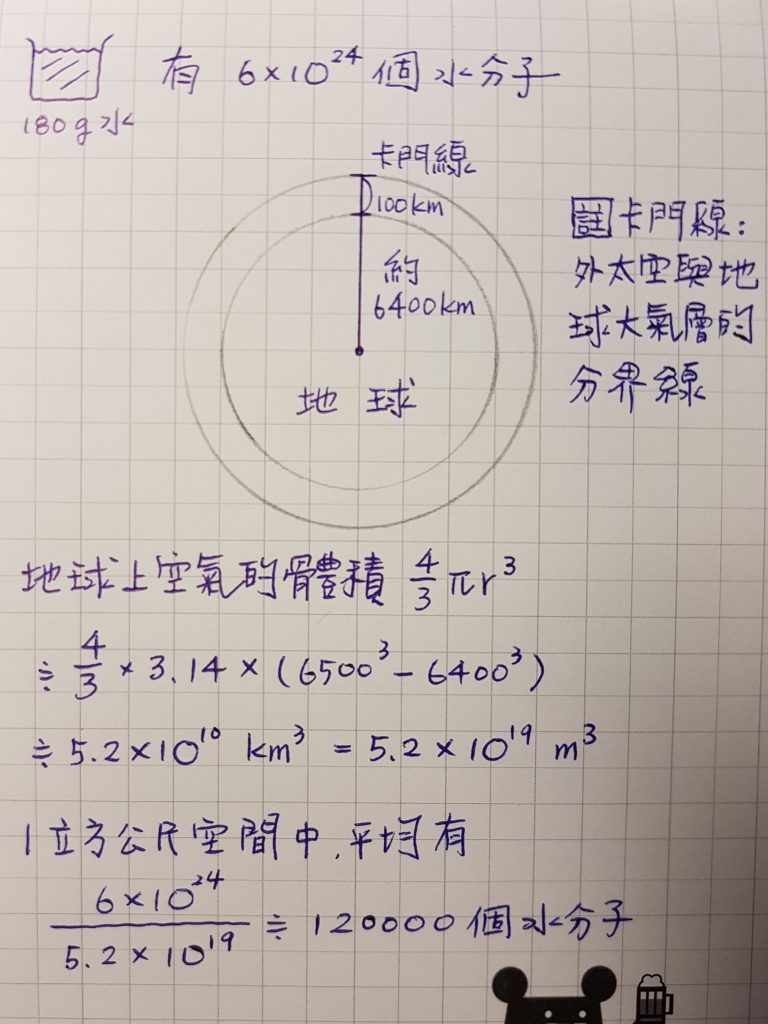 有 6×10²⁴ 個水分子
180g水
卡門線
100km
約
6400km
地 球
註卡門線:
外太空與地
球大氣層的
分界線
地球上空氣的體積 4/3 πr³
≒ 4/3 × 3.14 × (6500³ - 6400³)
≒ 5.2×10¹⁰ km³ = 5.2×10¹⁹ m³
1立方公尺空間中,平均有
6×10²⁴ / 5.2×10¹⁹ ≒ 120000個水分子